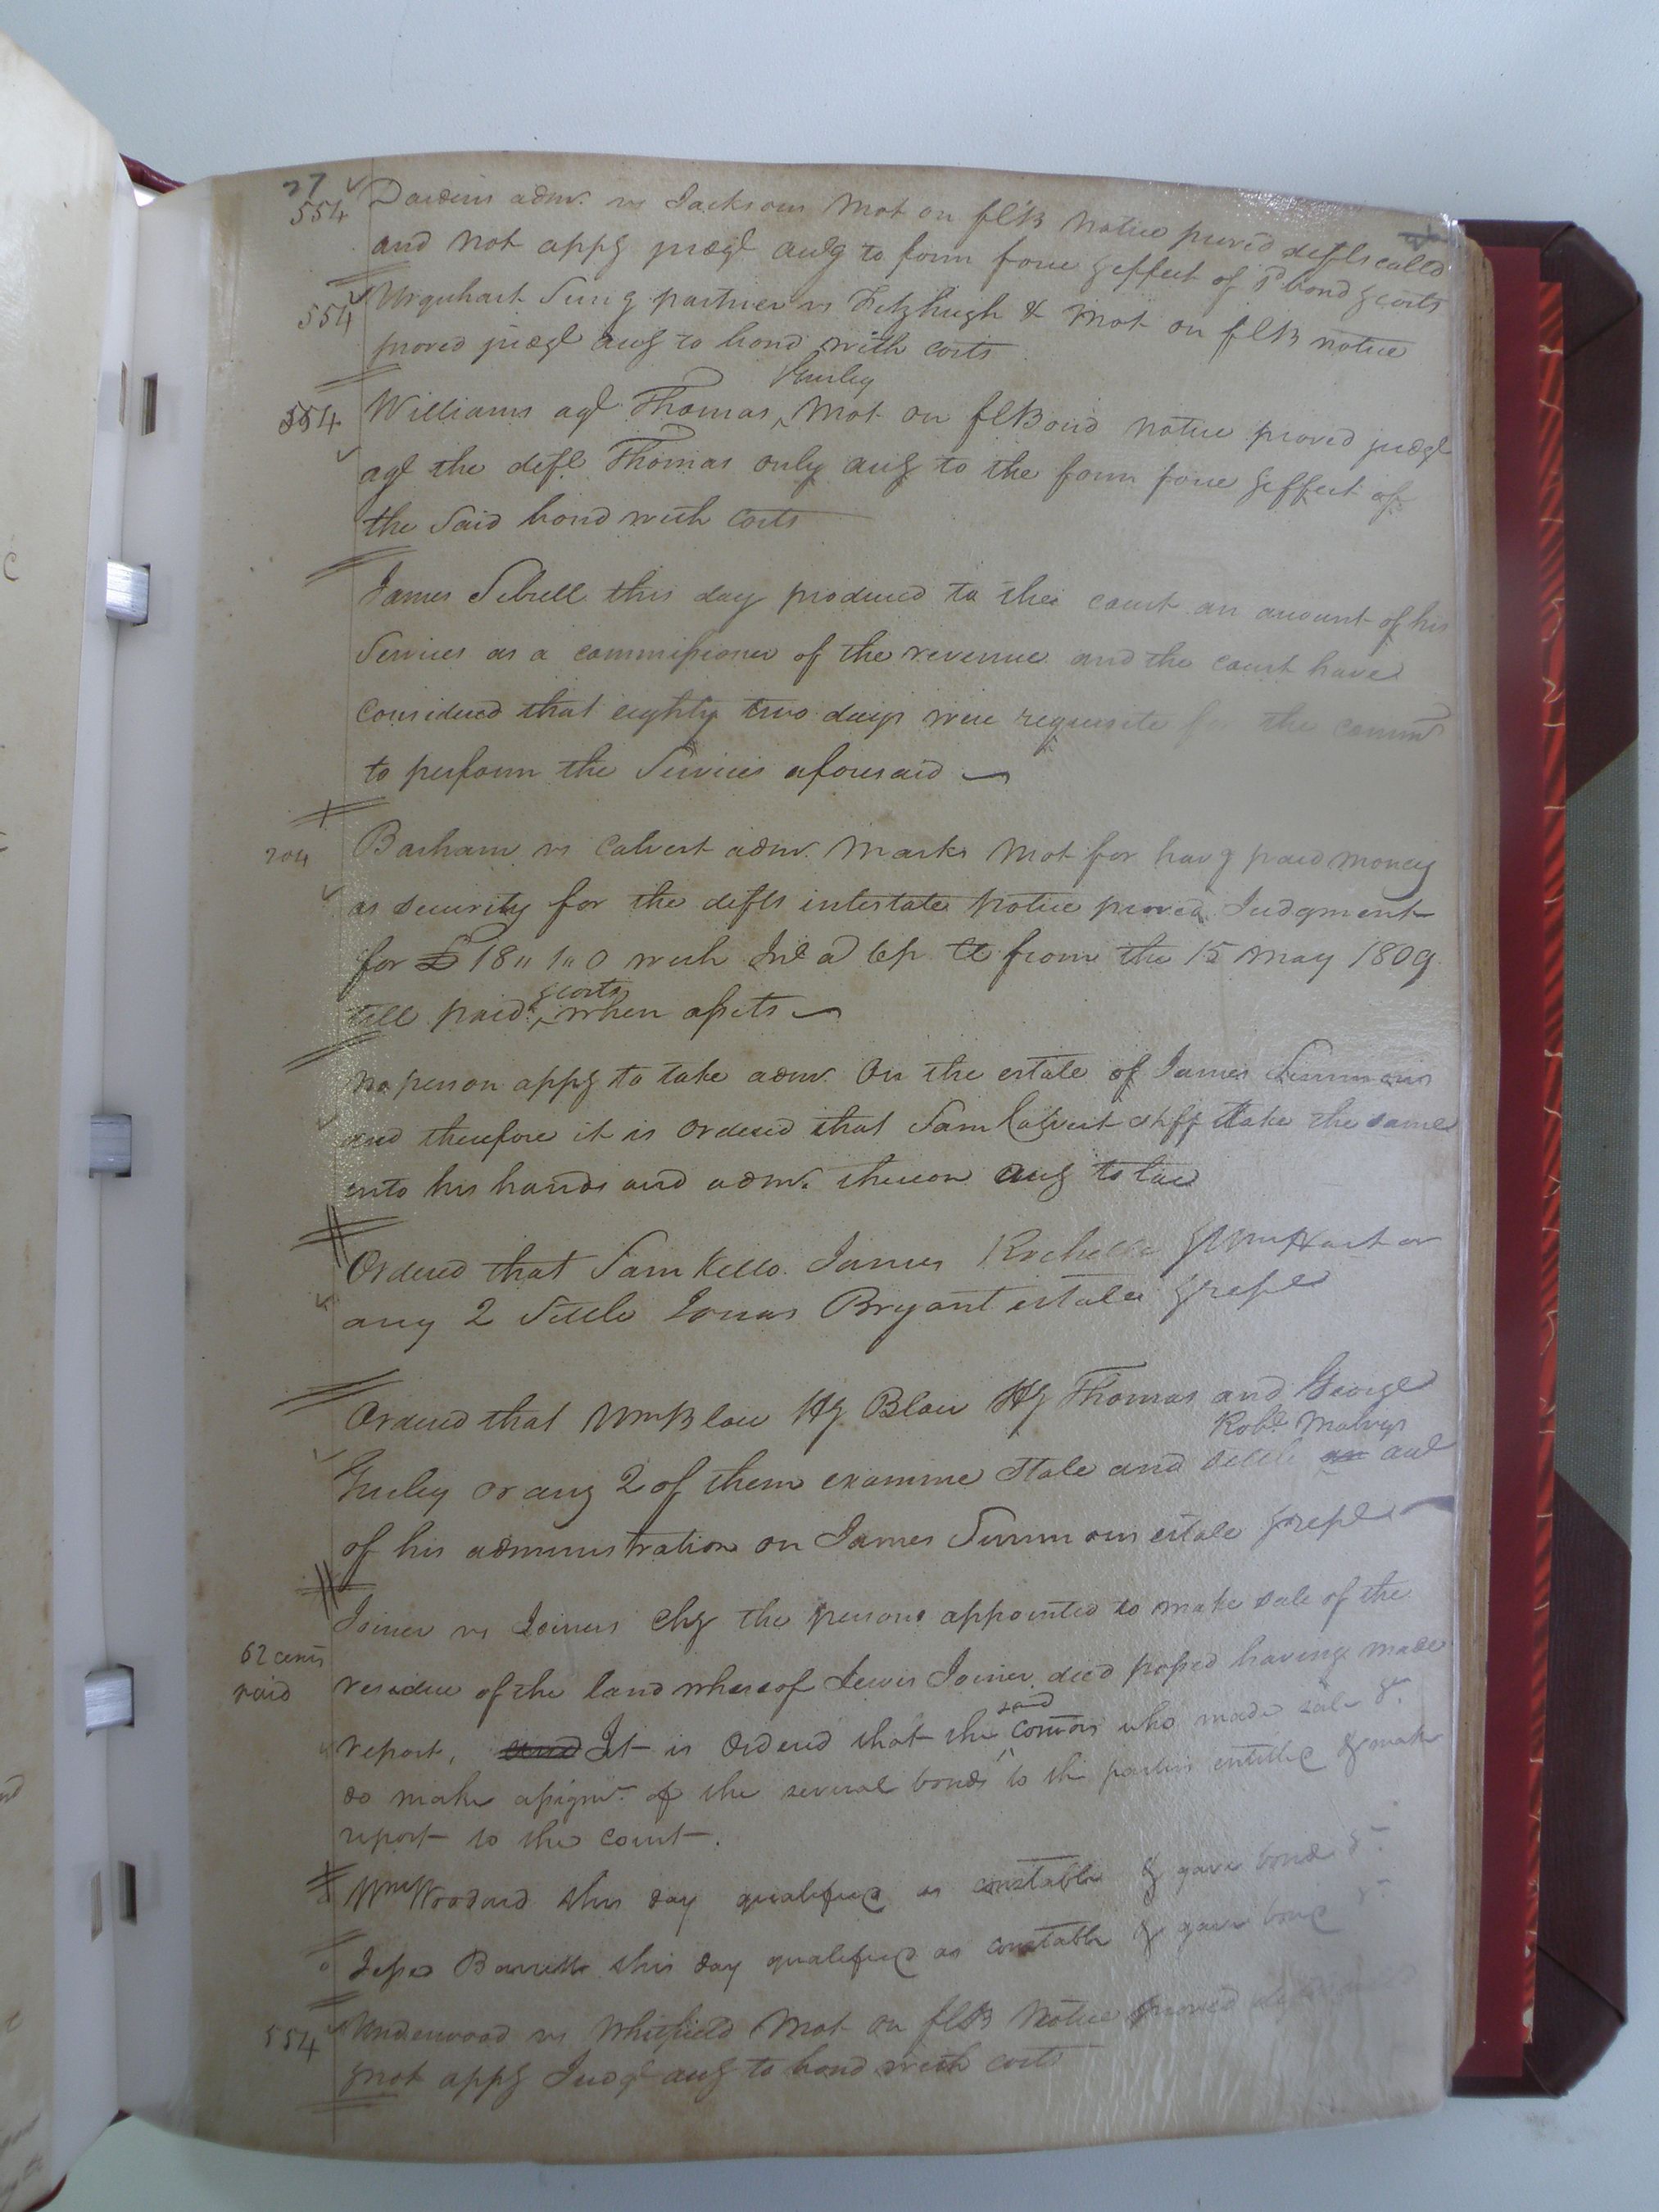 27
554 Dardens admr. vs Jacksons Mot on flB Notice proved defts called
and not appg judgt accg to form force & effect of sd bond & costs
554 Urquhart Survg partner vs Fitzhugh & Mot on flB notice
proved judgt accg to bond with costs
Gurley
554 Williams agt Thomas ^ Mot on flBond notice proved judgt
agt the deft Thomas only accg to the form force & effect of
the said bond with costs
James Sebrell this day produced to the court an account of his
Services as a commissioner of the revenue and the court have
Considered that eighty two days were requisite for the commr
to perform the Services aforesaid
204 Barham vs Calvert admr. Marks Mot for havg paid money
as security for the defts intestate Notice proved Judgment
for £ 18 " 1 " 0 with Int a 6 p Ct from the 15 May 1809
& costs
till paid ^ when assets
No person appg to take admr. On the estate of James Simmons
and therefore it is Ordered that Sam Calvert shff take the same
into his hands and admr. thereon accg to law
Ordered that Sam Kello James Rochelle & Wm Hart or
any 2 Settle Jonas Bryant estate & rept
Ordered that Wm Blow Hy Blow Hy Thomas and George
Robt Malrys
Gurley or any 2 of them examine State and settle an act
of his administration on James Simmons estate & rept
Joiner vs Joiners Chy the persons appointed to make sale of the
62 cents
paid
residue of the land whereof Lewis Joiner died possed having made
said
report, and It is Ordered that the comrs who made sale &c.
do make assignt. of the several bonds to the parties entitled & make
report to the court.
Wm Woodard this day qualified as constable & gave bond &c.
Jesse Barrett this day qualified as constable & gave bond &c
554 Underwood vs Whitfield Mot on flB Notice proved
& not appg Judgt accg to bond with costs